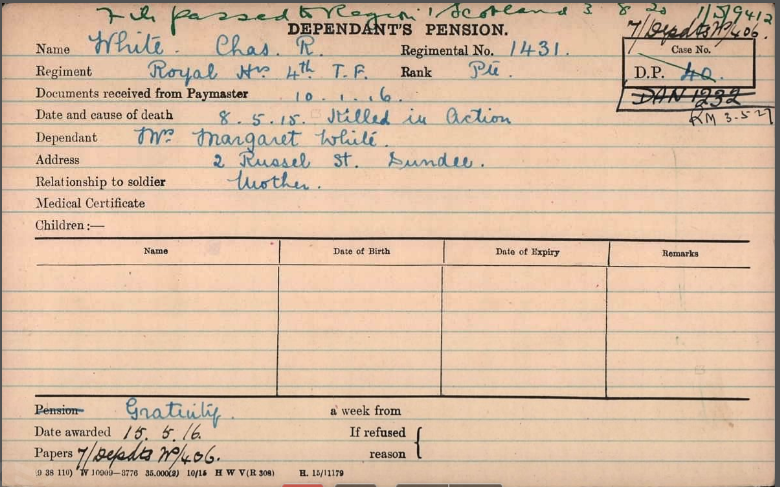 passed to Region 1 Scotland 3 8 20 11/5/9412
DEPENDANT'S PENSION.
7/Depdts WP/406.
Name White. Chas. R. Regimental No. 1431.
Case No.
Regiment Royal Hrs 4th T.F. Rank Pte.
D.P. 40
Documents received from Paymaster 10.1.16.
DAN 1232
Date and cause of death 8.5.15. Killed in Action
RM 3.5.27
Dependant Mrs Margaret White.
Address 2 Russel St. Dundee.
Relationship to soldier Mother.
Medical Certificate
Children :—
Name Date of Birth Date of Expiry Remarks
Pension Gratuity. a week from
Date awarded 15.5.16. If refused
Papers 7/Depdts WP/406. reason
(9 38 110) W 10909—3776 35,000(2) 10/15 H W V(R 308) H. 15/1179